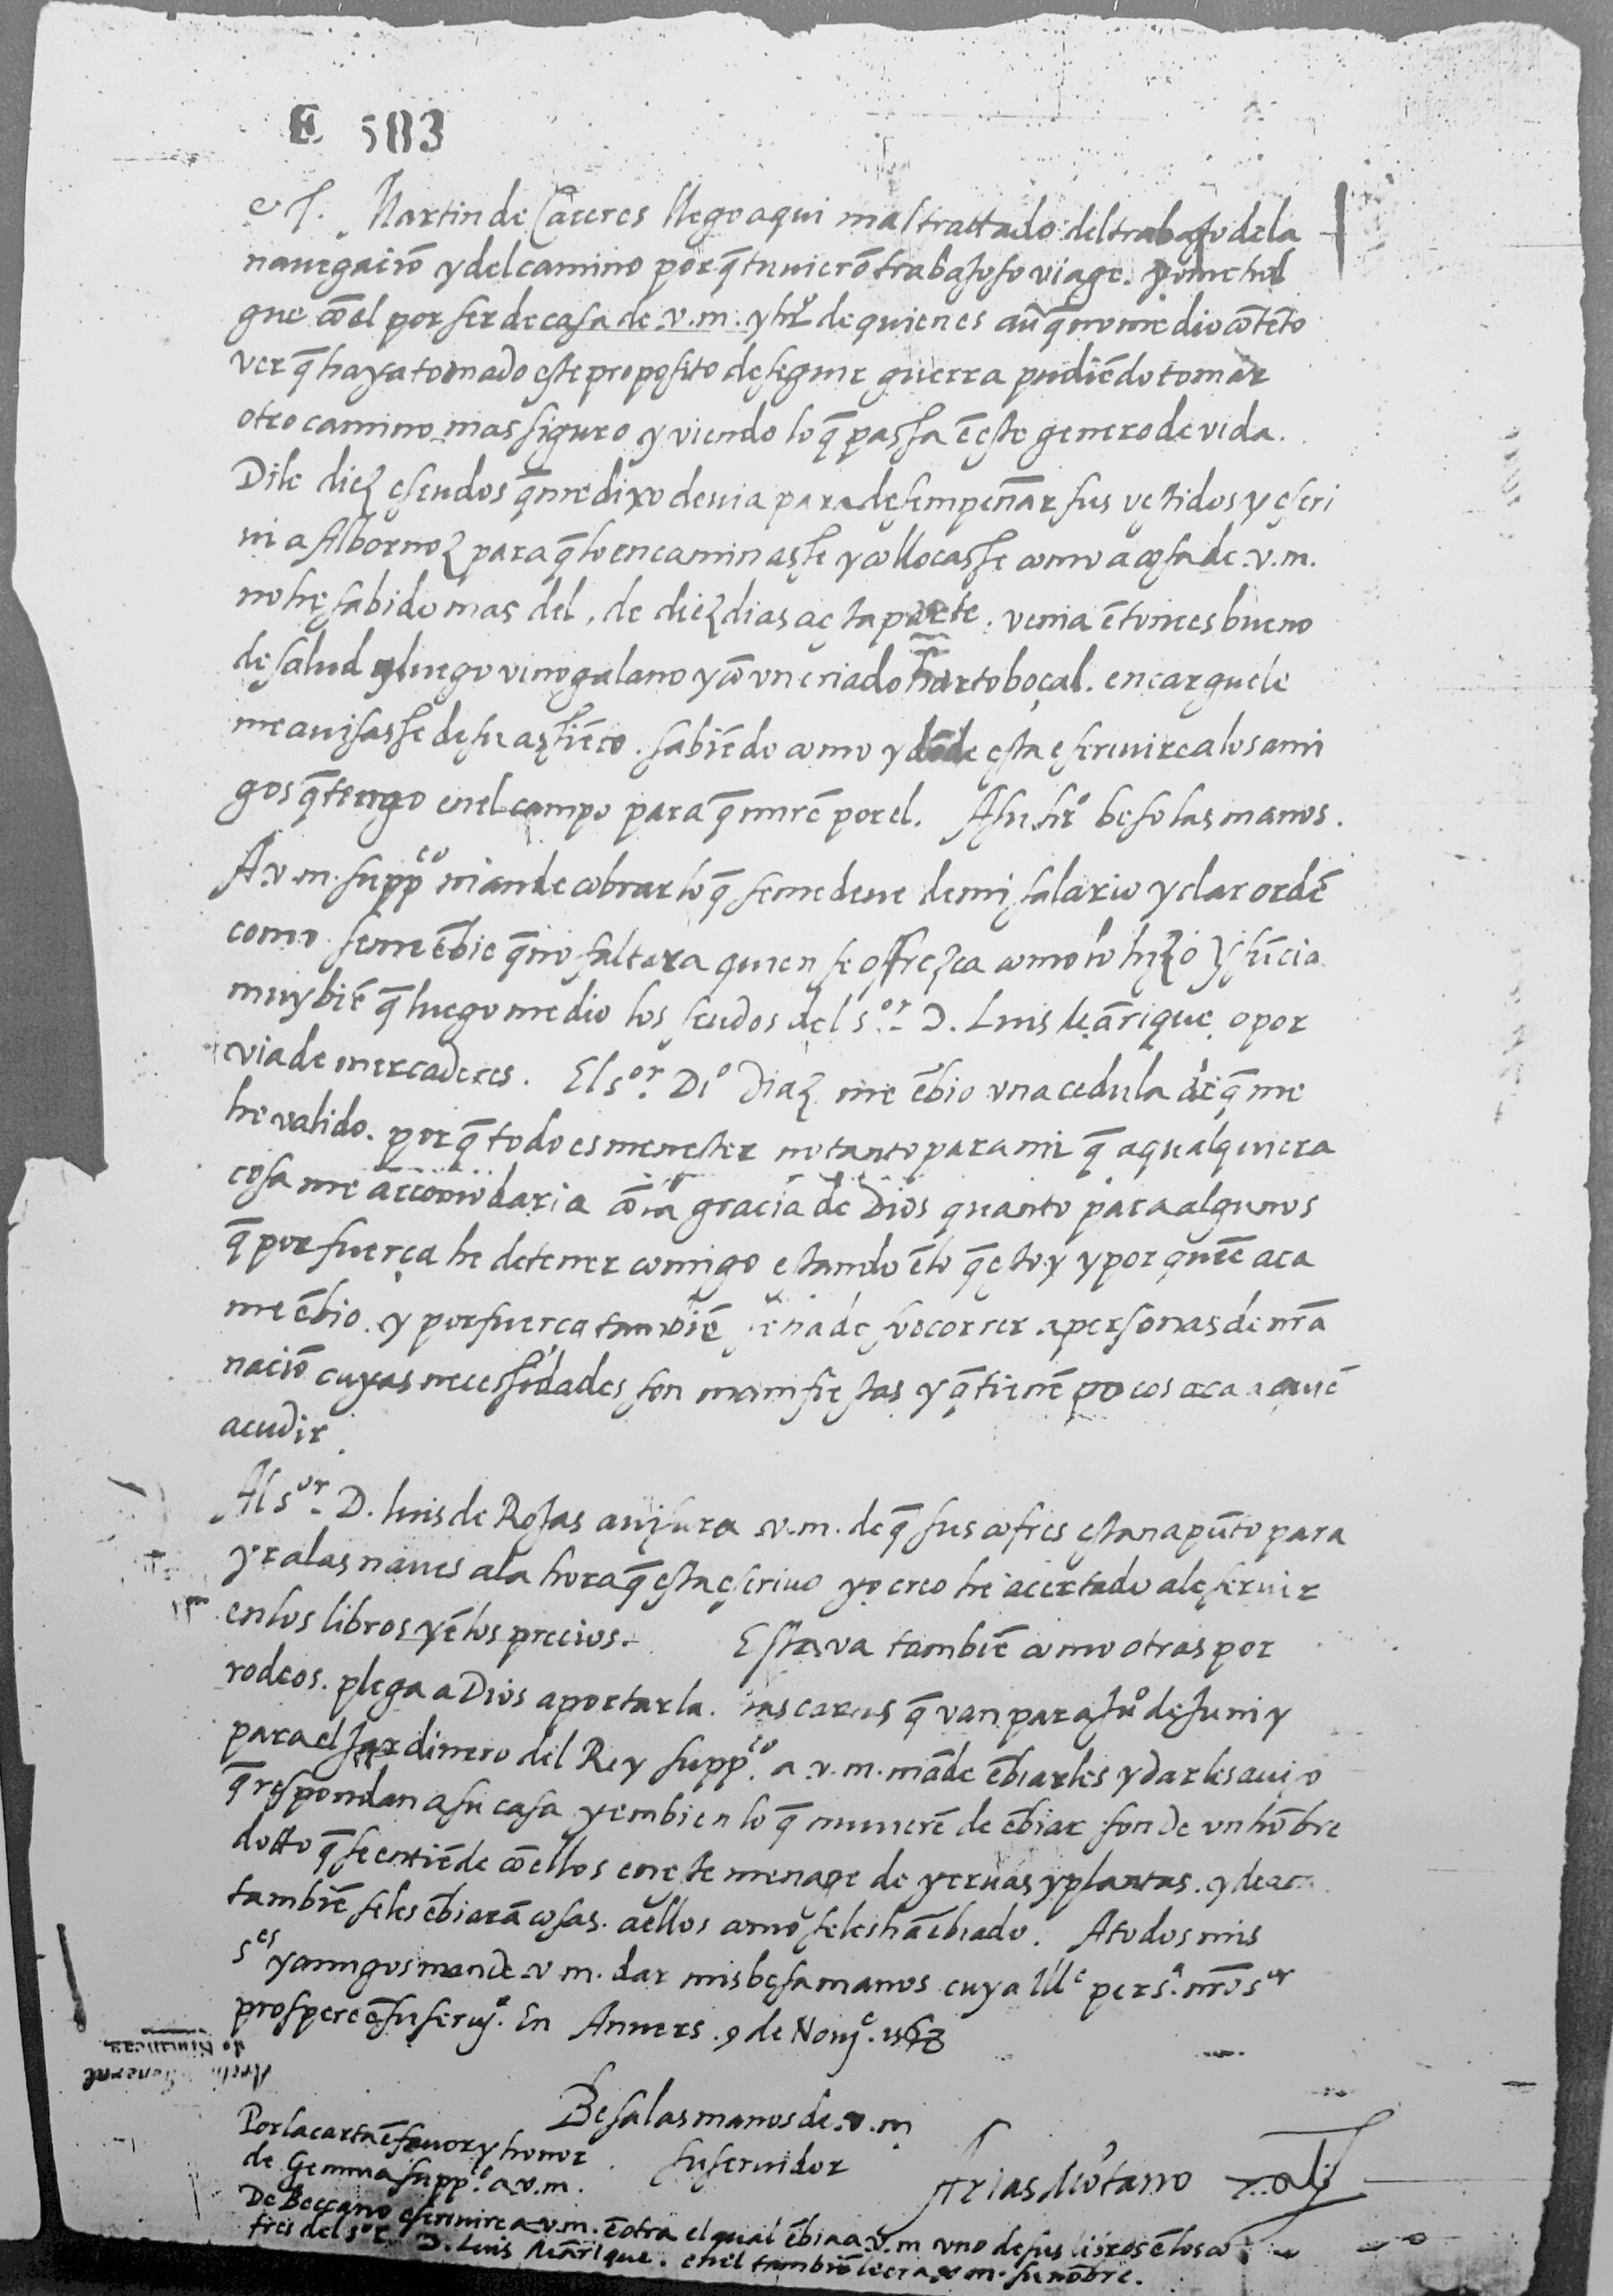 E 583
Martin de Caceres llego aqui maltrattado del trabajo de la
nauegaciō y del camino porq̄ tuuierō trabajoso viage. yo me hol
gue cō el por ser de casa de .v.m. y hr̄o de quien es aūq̄ no me dio cōtēto
ver q̄ haya tomado este proposito de seguir guerra pudiēdo tomar
otro camino mas siguro y viendo lo q̄ passa ē este genero de vida.
Dile diez escudos q̄ me dixo deuia para desempeñar sus vestidos y escri
ui a Albornoz para q̄ lo encaminasse y collocasse como a cosa de .v.m.
no he sabido mas del, de diez dias a esta parte. venia ētonces bueno
de salud y luego vino galano y cō vn criado harto boçal. encarguele
me auisasse de su assiēto. sabiēdo como y dōde esta escreuire a los ami
gos q̄ tengo en el campo para q̄ mirē por el. A su hr̄o beso las manos.
A .v.m. supp^co mande cobrar lo q̄ se me deue de mi salario y dar ordē
como se me ēbie q̄ no faltara quien se offrezca como lo hizo
muy biē q̄ luego me dio los scudos del s^or D. Luis Māriquę o por
via de mercaderes. El s^or. D^o Diaz me ēbio vna cedula de q̄ me
he valido. porq̄ todo es menester no tanto para mi q̄ a qualquiera
cosa me accomodaria cō la gracia de Dios quanto para algunos
q̄ por fuerça he de tener comigo estando ē lo q̄ estoy y por quiē aca
me ēbio. y por fuerça tambiē se ha de soccorrer a personas de nr̄a
naciō cuyas necessidades son manifiestas y q̄ tienē pocos aca a quiē
acudir.
Al s^or. D. luis de Rojas auisara .v.m. de q̄ sus cofres estan a pūto para
yr a las naues a la hora q̄ esta escriuo yo creo he acertado a le seruir
en los libros y ē los precios. Estava tambiē como otras por
rodeos. plega a Dios aportarla. las cartas q̄ van para Ju^o de
para el Jardinero del Rey supp^co a .v.m. māde ēbiarles y dar les auiso
q̄ respondan a su casa y embien lo q̄ vuuierē de ēbiar son de vn hōbre
docto q̄ se entiēde cō ellos en este menage de yeruas y plantas. y de aca
tambiē se les ēbiarā cosas a ellos como se les hā ēbiado. A todos mis
s^es y amigos mande .v.m. dar mis besamanos cuya Ill^e pers^a. nr̄o s^or
prospere ē su serui^o. En Anuers .9 de Nouj^e. 1568
Besa las manos de .v.m.
su seruidor
Arias Mōtano
Por la carta ē fauor y honor
de Gemma supp^co a .v.m.
De Beccano escreuire a .v.m. ē otra el qual ēbia a .v.m vno de sus libros ē los co
fres del s^or. D. Luis Mārique. en el tambiē leera .v.m. su nōbre.
Archivo General
de Simancas